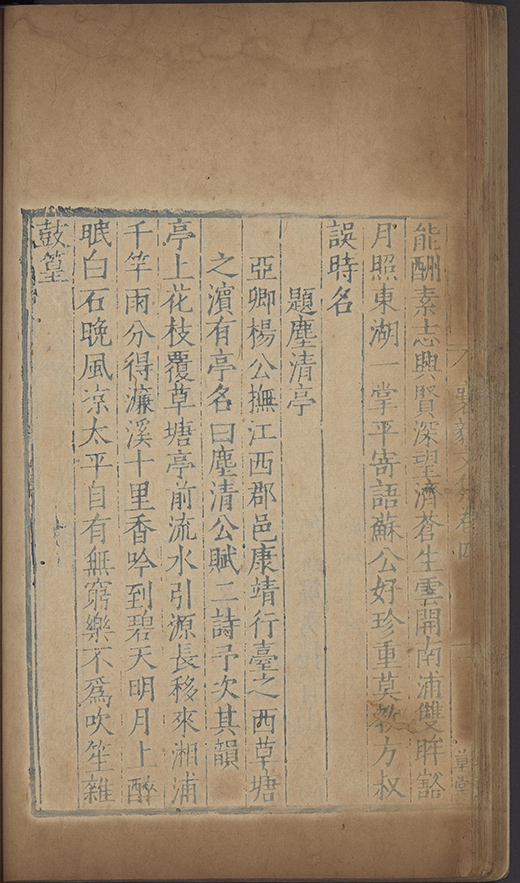 能酬素志興賢深望濟蒼生雲開南浦雙眸豁
月照東湖一掌平寄語蘇公好珍重莫教方叔
誤時名
題塵清亭
亞卿楊公撫江西郡邑康靖行臺之西草塘
之濵有亭名曰塵清公賦二詩予次其韻
亭上花枝覆草塘亭前流水引源長移來湘浦
千竿雨分得濂溪十里香吟到碧天明月上醉
眠白石晚風凉太平自有無窮樂不爲吹笙雜
鼓篁